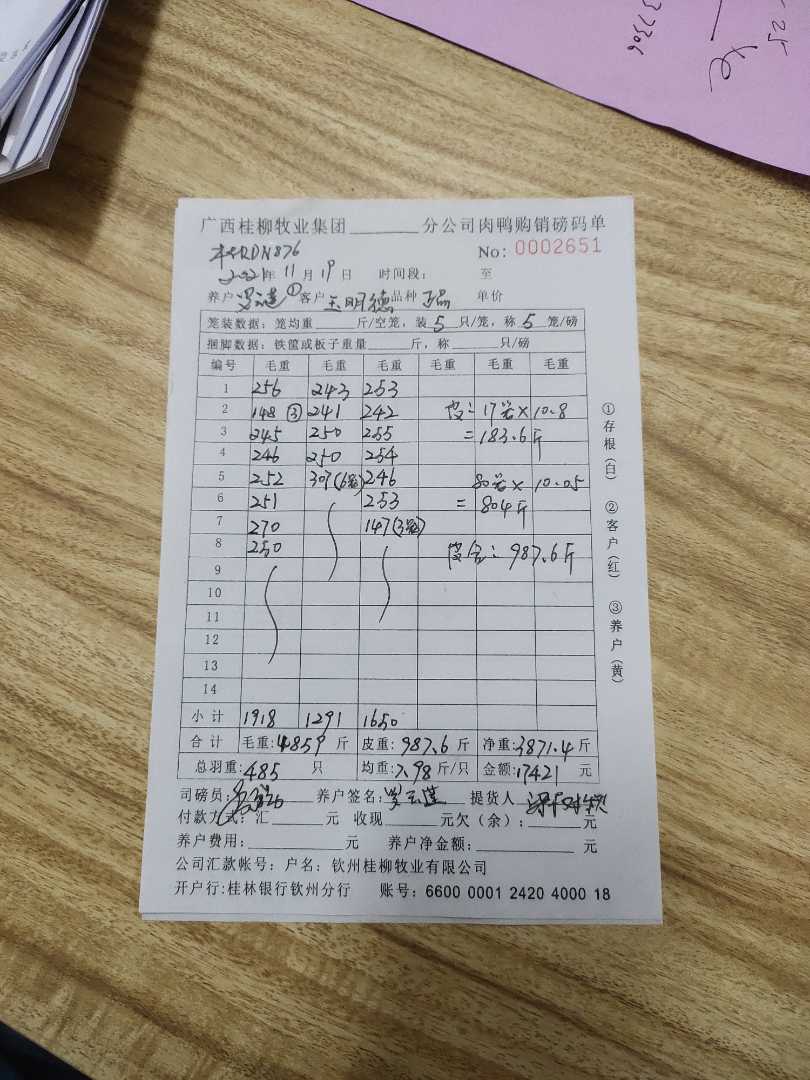 广西桂柳牧业集团______分公司肉鸭购销磅码单
RDN876 No: 0002651
2021年 11月 19日 时间段: 至
养户 ① 客户 玉明德 品种 单价
笼装数据: 笼均重____斤/空笼, 装 5 只/笼, 称 5 笼/磅
捆脚数据: 铁筐或板子重量____斤, 称____只/磅
编号 毛重 毛重 毛重 毛重 毛重 毛重
1 256 243 253
2 148 ③ 241 242 皮: 17笼×10.8
3 245 250 255 =183.6斤
4 246 250 254
5 252 307(6笼) 246 80笼×10.05
6 251 253 = 804斤
7 270 147(3笼)
8 250 皮合: 987.6斤
9
10
11
12
13
14
小计 1918 1291 1650
合计 毛重: 4859 斤 皮重: 987.6 斤 净重: 3871.4 斤
总羽重: 485 只 均重: 7.98 斤/只 金额: 17421 元
司磅员: 养户签名: 提货人
付款方式: 汇____元 收现____元欠(余):____元
养户费用:____元 养户净金额:____元
公司汇款帐号: 户名: 钦州桂柳牧业有限公司
开户行:桂林银行钦州分行 账号: 6600 0001 2420 4000 18
①存根(白) ②客户(红) ③养户(黄)
37306
25